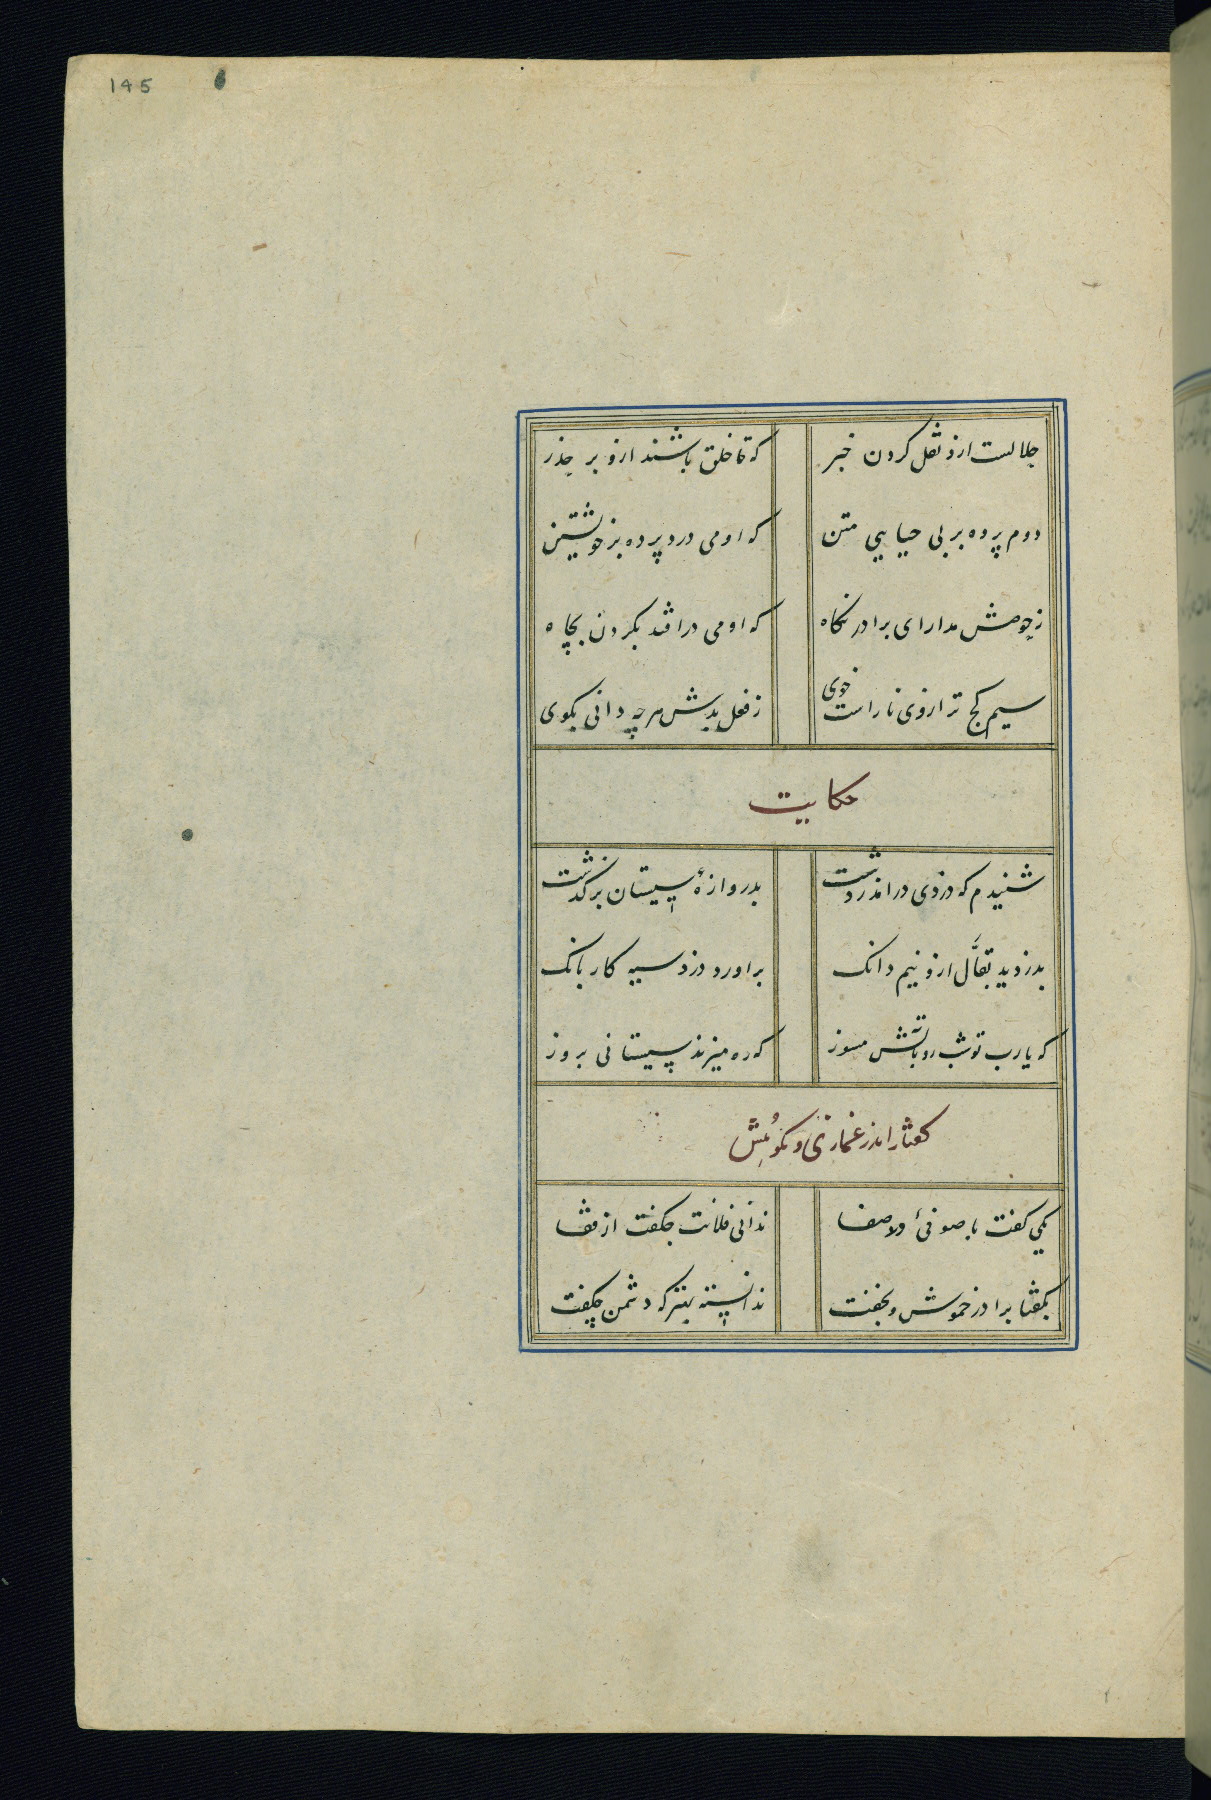 145
حلالست ازو نقل کردن خبر که تا خلق باشند ازو بر حذر
دوم پرده بر بی حیایی متن که او می درد پرده بر خویشتن
ز حوضش مدار ای برادر نگاه که او می درافتد بگردن بچاه
سیم کج ترازوی ناراست خوی ز فعل بدش هرچه دانی بگوی
حکایت
شنیدم که دزدی درآمد ز دشت بدروازهٔ سیستان برگذشت
بدزدید بقّال ازو نیم دانک برآورد دزد سیه کار بانک
که یارب تو شب رو بآتش مسوز که ره میزند سیستانی بروز
گفتار اندر غمازی و نکوهش
یکی گفت با صوفیٔ در صفا ندانی فلانت چگفت از قفا
بگفتا برادر خموش و بخفت ندانسته بهتر که دشمن چگفت